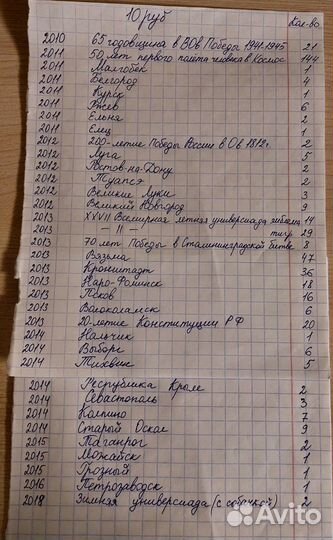 10 руб Кол-во
2010 65 годовщина в ВОв Победы 1941-1945 21
2011 50 лет первого полета человека в Космос 144
2011 Малгобек 1
2011 Белгород 4
2011 Курск 1
2011 Ржев 6
2011 Ельня 2
2011 Елец 1
2012 200-летие Победы России в Ов 1812г. 2
2012 Луга 5
2012 Ростов-на-Дону 2
2012 Туапсе 2
2012 Великие Луки 3
2012 Великий Новгород 9
2013 XXVII Всемирная летняя универсиада эмблема 14
2013 - II - тигр 29
2013 70 лет Победы в Сталинградской битве 8
2013 Вязьма 47
2013 Кронштадт 36
2013 Наро-Фоминск 18
2013 Псков 16
2013 Волоколамск 6
2013 20-летие Конституции РФ 20
2014 Нальчик 1
2014 Выборг 6
2014 Тихвин 5
2014 Республика Крым 2
2014 Севастополь 3
2014 Колпино 7
2014 Старый Оскол 9
2015 Таганрог 2
2015 Можайск 1
2015 Грозный 1
2016 Петрозаводск 1
2018 Зимняя универсиада (с собачкой) 2
Avito